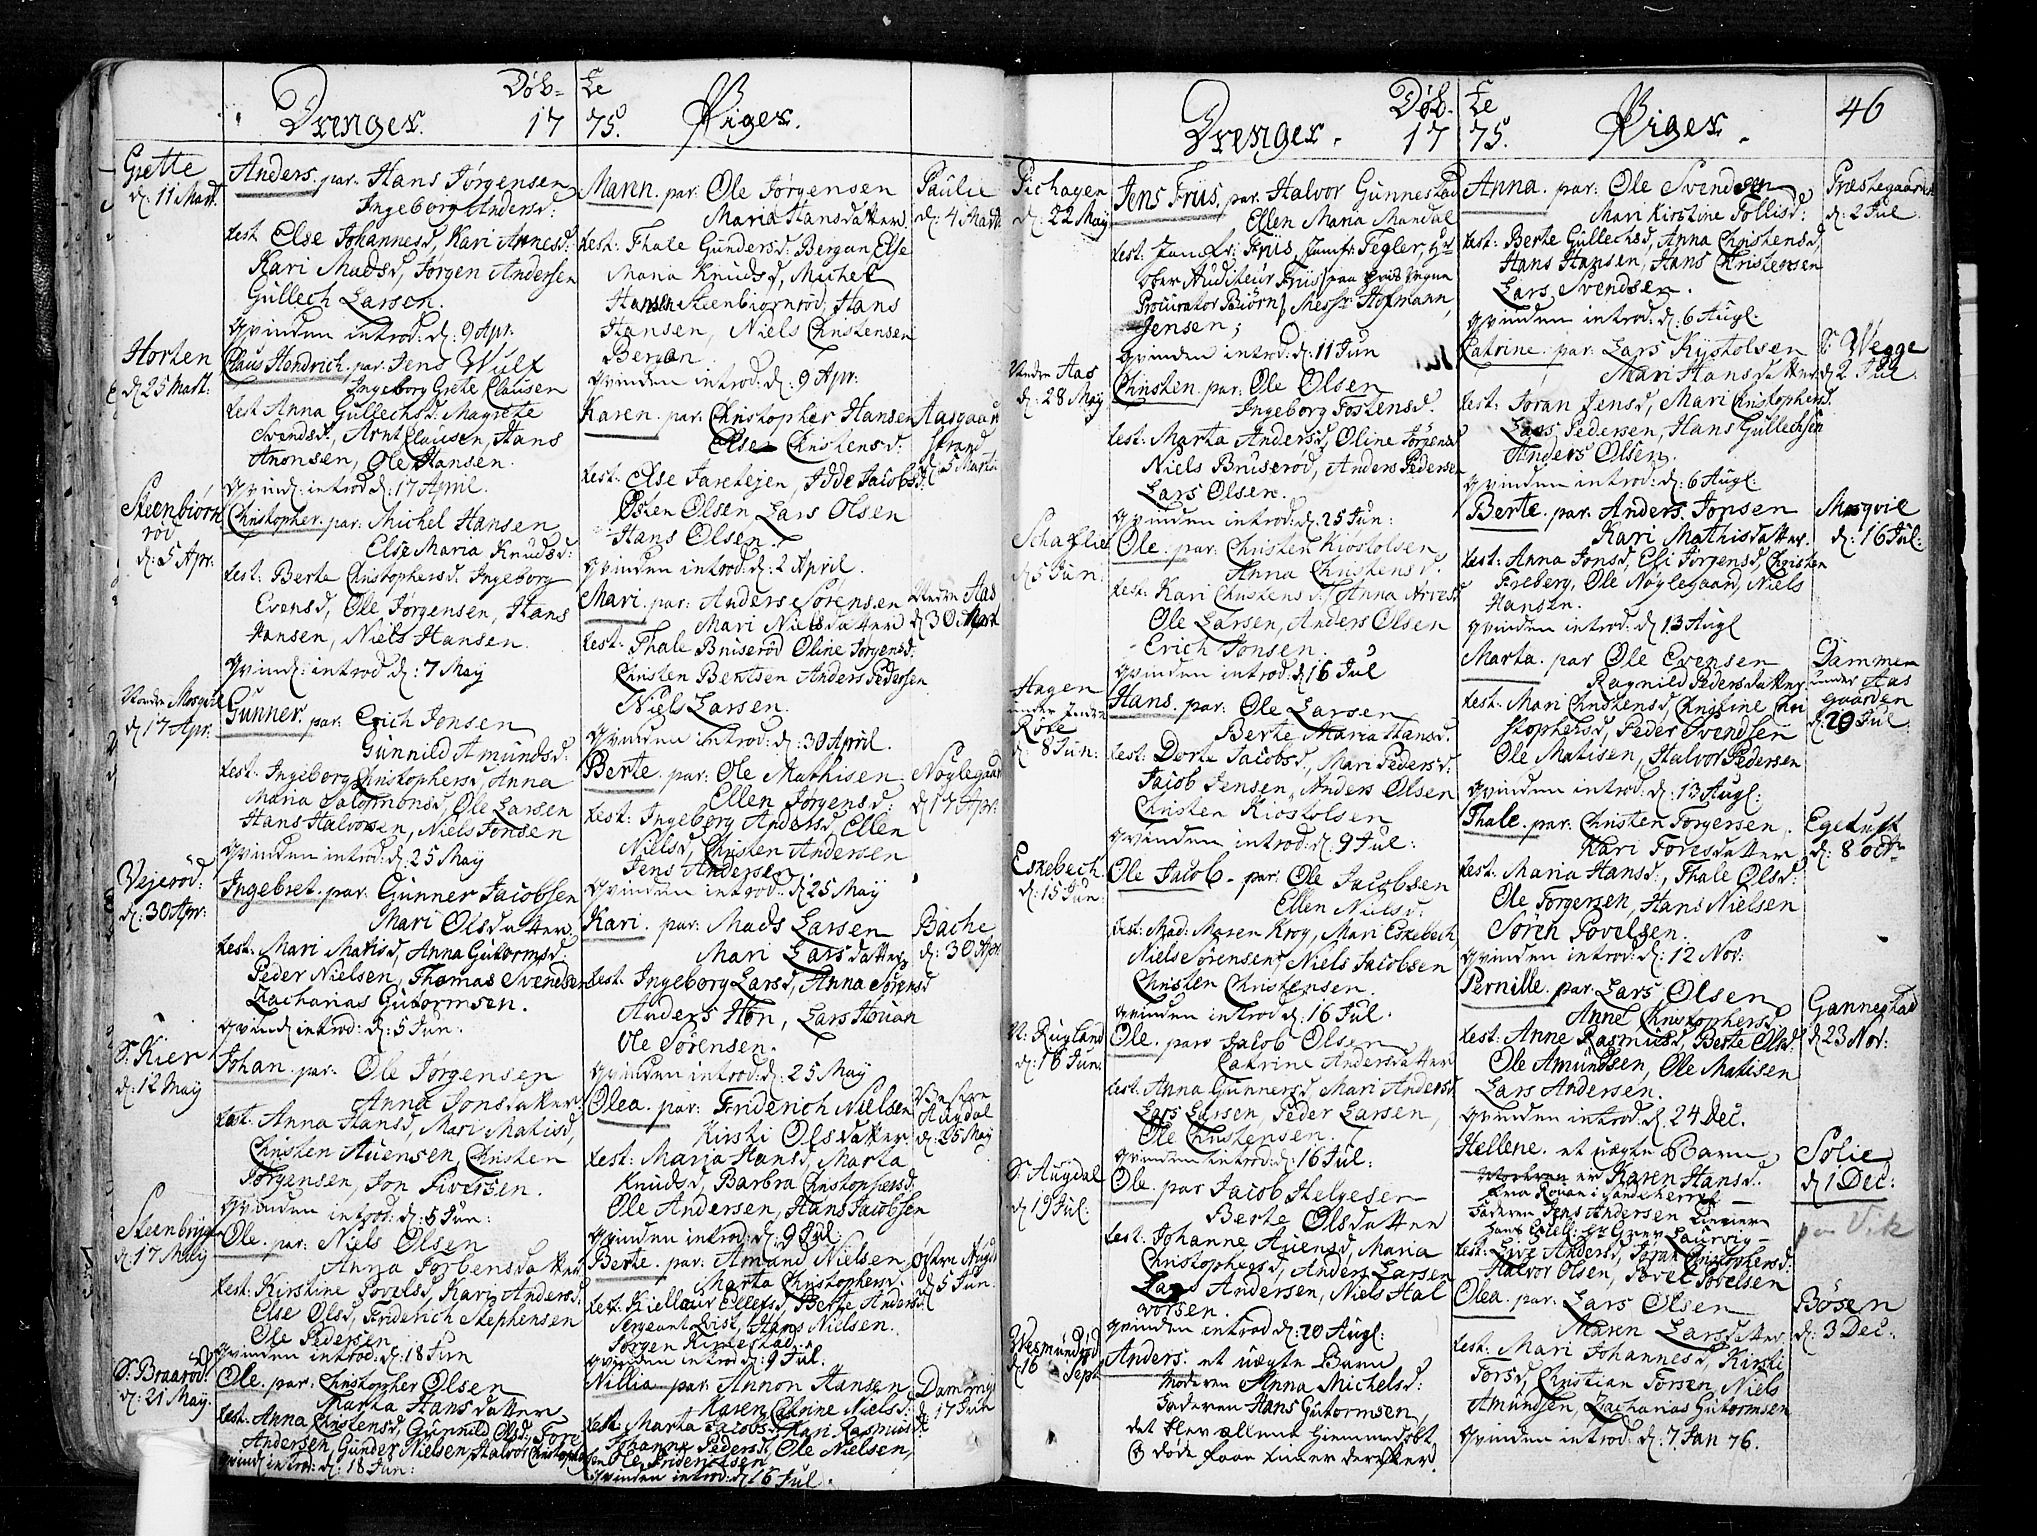 Døb=
Drenger. 17
Grette
d: 11 Mart.
Anders. par. Hans Jørgensen
Ingeborg Andersd:
test Else Johannesd, Kari Arnesd:
Kari Madsd, Jørgen Andersen
Gullech Larsen.
Qvinden introd: d: 9 Apr:
Horten
d: 25 Mart.
Claus Hendrich. par. Jens Wulf
Ingeborg Grete Clausen
test Anna Gullechsd. Magrete
Svendsd, Arnt Clausen, Hans
Anonsen, Ole Hansen.
Qvind: introd d: 17 April.
Steenbiørn
rød
d: 5 Apr:
Christopher. par: Michel Hansen
Else Maria Knudsd:
test: Berte Christophersd. Ingeborg
Evensd, Ole Jørgensen, Hans
Hansen, Niels Hansen.
Qvind: introd d: 7 May
d: 17 Apr.
Gunner. par: Erich Jensen
Gunnild Amundsd:
test: Ingeborg Christophersd, Anna
Maria Salomonsd, Ole Larsen
Hans Halvorsen, Niels Jonsen
Qvinden introd: d: 25 May
Vejerød:
d: 30 Apr:
Ingebret. par: Gunner Jacobsen
Mari Olsdatter
test: Mari Matisd, Anna Gutormsd.
Peder Nielsen, Thomas Svendsen
Zacharias Gutormsen.
Qvind introd: d: 5 Jun.
S. Kier
d: 12 May
Johan. par. Ole Jørgensen
Anna Jonsdatter.
test: Anna Hansd, Mari Matisd,
Christen Auensen, Christen
Jørgensen, Jon Siversen.
Qvinden introd: d: 5 Jun:
d: 17 May
Ole. par: Niels Olsen
Anna Torbensdatter
test: Kirstine Povelsd, Kari Andersd:
Else Olsd, Friderich Stephensen
Ole Pedersen
Qvinden introd: d: 18 Jun
S: Braarød:
d: 21 May.
Ole. par: Christopher Olsen
Marta Hansdatter
test: Anna Christensd, Gunnild Olsd, Tore
Andersen, Gunder Nielsen, Halvor Christoph
Qvind introd: d: 18 Jun:
te
75. Piger.
Mann. par: Ole Jørgensen
Maria Hansdatter
Paulie
d: 4 Mart.
test: Thale Gundersd. Bergan Else
Maria Knudsd, Michel
Hansen Steenbiørnrød, Hans
Hansen, Niels Christensen
Bergan.
Qvinden introd: d: 9 Apr:
Karen. par: Christopher Hansen
Else Christensd:
Aasgaar
strand
d: 5 Martii
test: Else Faretejen, Idde Jacobsd:
Østen Olsen Lars Olsen
Hans Olsen.
Qvinden introd: d: 2 April.
Mari. par: Anders Sørensen
Mari Nielsdatter
Nedre Aas
d: 30 Mart
test: Thale Bruserød Oline Jørgensd.
Christen Bentsen Anders Pedersen
Niels Larsen.
Qvinden introd: d: 30 April.
Berte. par: Ole Mathisen
Ellen Jørgensd:
Nøylegaar
d: 17 Apr:
test: Ingeborg Andersd, Ellen
Nielsd, Christen Andersen
Jens Andersen
Qvinden introd: d: 25 May
Kari. par: Mads Larsen
Mari Larsdatter
Bache
d: 30 Apr.
test: Ingeborg Larsd, Anna Sørensd
Anders Høn, Lars Houan
Ole Sørensen.
Qvinden introd: d: 25 May
Olea. par: Friderich Nielsen
Kirsti Olsdatter.
Vestre
Augdal
d: 25 May
test: Maria Hansd, Marta
Knudsd, Barbra Christophersd.
Ole Andersen, Hans Jacobsen
Qvinden introd: d: 9 Jul.
Berte. par: Amand Nielsen
Marta Christophersd.
d: 5 Jun.
test: Kiellaur Ellefsd, Berte Andersd
Sergeant Qvist, Hans Nielsen.
Qvinden introd: d: 9 Jul.
Nillia par: Annon Hansen
Karen Catrine Nielsd:
d: 17 Jun
test: Marta Jacobsd, Kari Rasmusd:
Johanne Pedersd, Ole Nielsen,
Ole Friderichsen
Qvinden introd: d: 16 Jul.
Døb=
Drenger. 17
Pichagen
d: 22 May
Jens Friis, par. Halvor Gunnestad
Ellen Maria Mandal
test: Jomfr: Friis, Jomfr: Tegler, Hr
Ober Auditeur Friis (paa hvis vegne
Procurator Biørn) Messr: Hofmann,
Jensen;
Qvinden introd: d: 11 Jun
Nedre Aas
d: 28 May
Christen. par: Ole Olsen
Ingeborg Tostensd.
test: Marta Andersd, Oline Jørgensd
Niels Bruserød, Anders Pedersen
Lars Olsen.
Qvinden introd: d: 25 Jun:
d: 5 Jun:
Ole. par: Christen Kiostolsen
Anna Christensd.
test: Kari Christensd, Anna Arvesd
Ole Larsen, Anders Olsen
Erich Jonsen.
Qvinden introd: d: 16 Jul
Hagen
under
Røre
d: 8 Jun:
Hans. par: Ole Larsen
Berte Maria Hansd.
test: Dorte Jacobsd, Mari Pedersd:
Jacob Jensen, Anders Olsen
Christen Kiostolsen
Qvinden introd: d: 9 Jul:
Eskebech
d: 15 Jun.
Ole Jacob. par: Ole Jacobsen
Ellen Nielsd:
test: Mad: Maren Krog, Mari Eskebech
Niels Sørensen, Niels Jacobsen
Christen Christensen.
Qvinden introd: d: 16 Jul.
N: Rugland
d: 16 Jun:
Ole. par Jacob Olsen
Catrine Andersdatter
test: Anna Gunnersd, Mari Andersd.
Lars Larsen, Peder Larsen,
Ole Christensen.
Qvinden introd: d: 16 Jul:
S: Augdal
d: 19 Jul.
Ole. par Jacob Helgesen
Berte Olsdatter
test: Johanne Auensd, Maria
Christophersd, Anders Larsen
Lars Andersen, Niels Hal
vorsen.
Qvinden introd: d: 20 Augl:
d: 16 Sept
Anders. et uægte Barn
Moderen Anna Michelsd:
Faderen Hans Gutormsen,
det blev allene hiemmedøbt
& døde faae timer derefter.
te
75. Piger. 46
Anna. par: Ole Svendsen
Mari Kirstine Tollisd:
Præstegaarden
d: 2 Jul.
test: Berte Gullechsd, Anna Christensd,
Hans Hansen, Hans Christensen
Lars Svendsen.
Qvinden introd: d: 6 Augl:
Catrine. par: Lars Kystolsen
Mari Hansdatter
Wegge
d: 2 Jul.
test: Joran Jensd, Mari Christophersd.
Lars Pedersen, Hans Gullechsen
Anders Olsen.
Qvinden introd: d: 6 Augl:
Berte. par: Anders Jonsen
Kari Mathisdatter.
Mosqvil
d: 16 Jul:
test: Anna Jonsd, Elsi Jørgensd, Christen
Freberg, Ole Nøylegaard, Niels
Hansen.
Qvinden introd: d: 13 Augl
Marta. par Ole Evensen
Ragnild Pedersdatter
Dammen
under Aas
gaarden
d: 20 Jul.
test: Mari Christensd, Christine Chri
stophersd, Peder Svendsen
Ole Matisen, Halvor Pedersen
Qvinden introd: d: 13 Augl:
Thale. par: Christen Torgersen.
Kari Toresdatter
d: 8 Octr
test: Maria Hansd:, Thale Olsd:
Ole Torgersen, Hans Nielsen
Søren Povelsen.
Qvinden introd: d: 12 Nov:
Pernille. par. Lars Olsen
Anne Christophersd
Gannestad
d: 23 Nov:
test: Anne Rasmusd, Berte Olsd.
Ole Amundsen, Ole Matisen
Lars Andersen.
Qvinden introd: d. 24 Dec.
Hellene. et uægte Barn
Solie
d: 1 Dec:
Moderen er Karen Hansd.
Faderen Jens Andersen
Halvor Olsen, Povel Povelsen
Olea. par: Lars Olsen
Maren Larsdatter
Bøsen
d: 3 Dec:
test: Mari Johannesd, Kirsti
Torsd, Christian Torsen, Niels
Amundsen, Zacharias Gutormsen
Qvinden introd: d: 7 Jan 76.